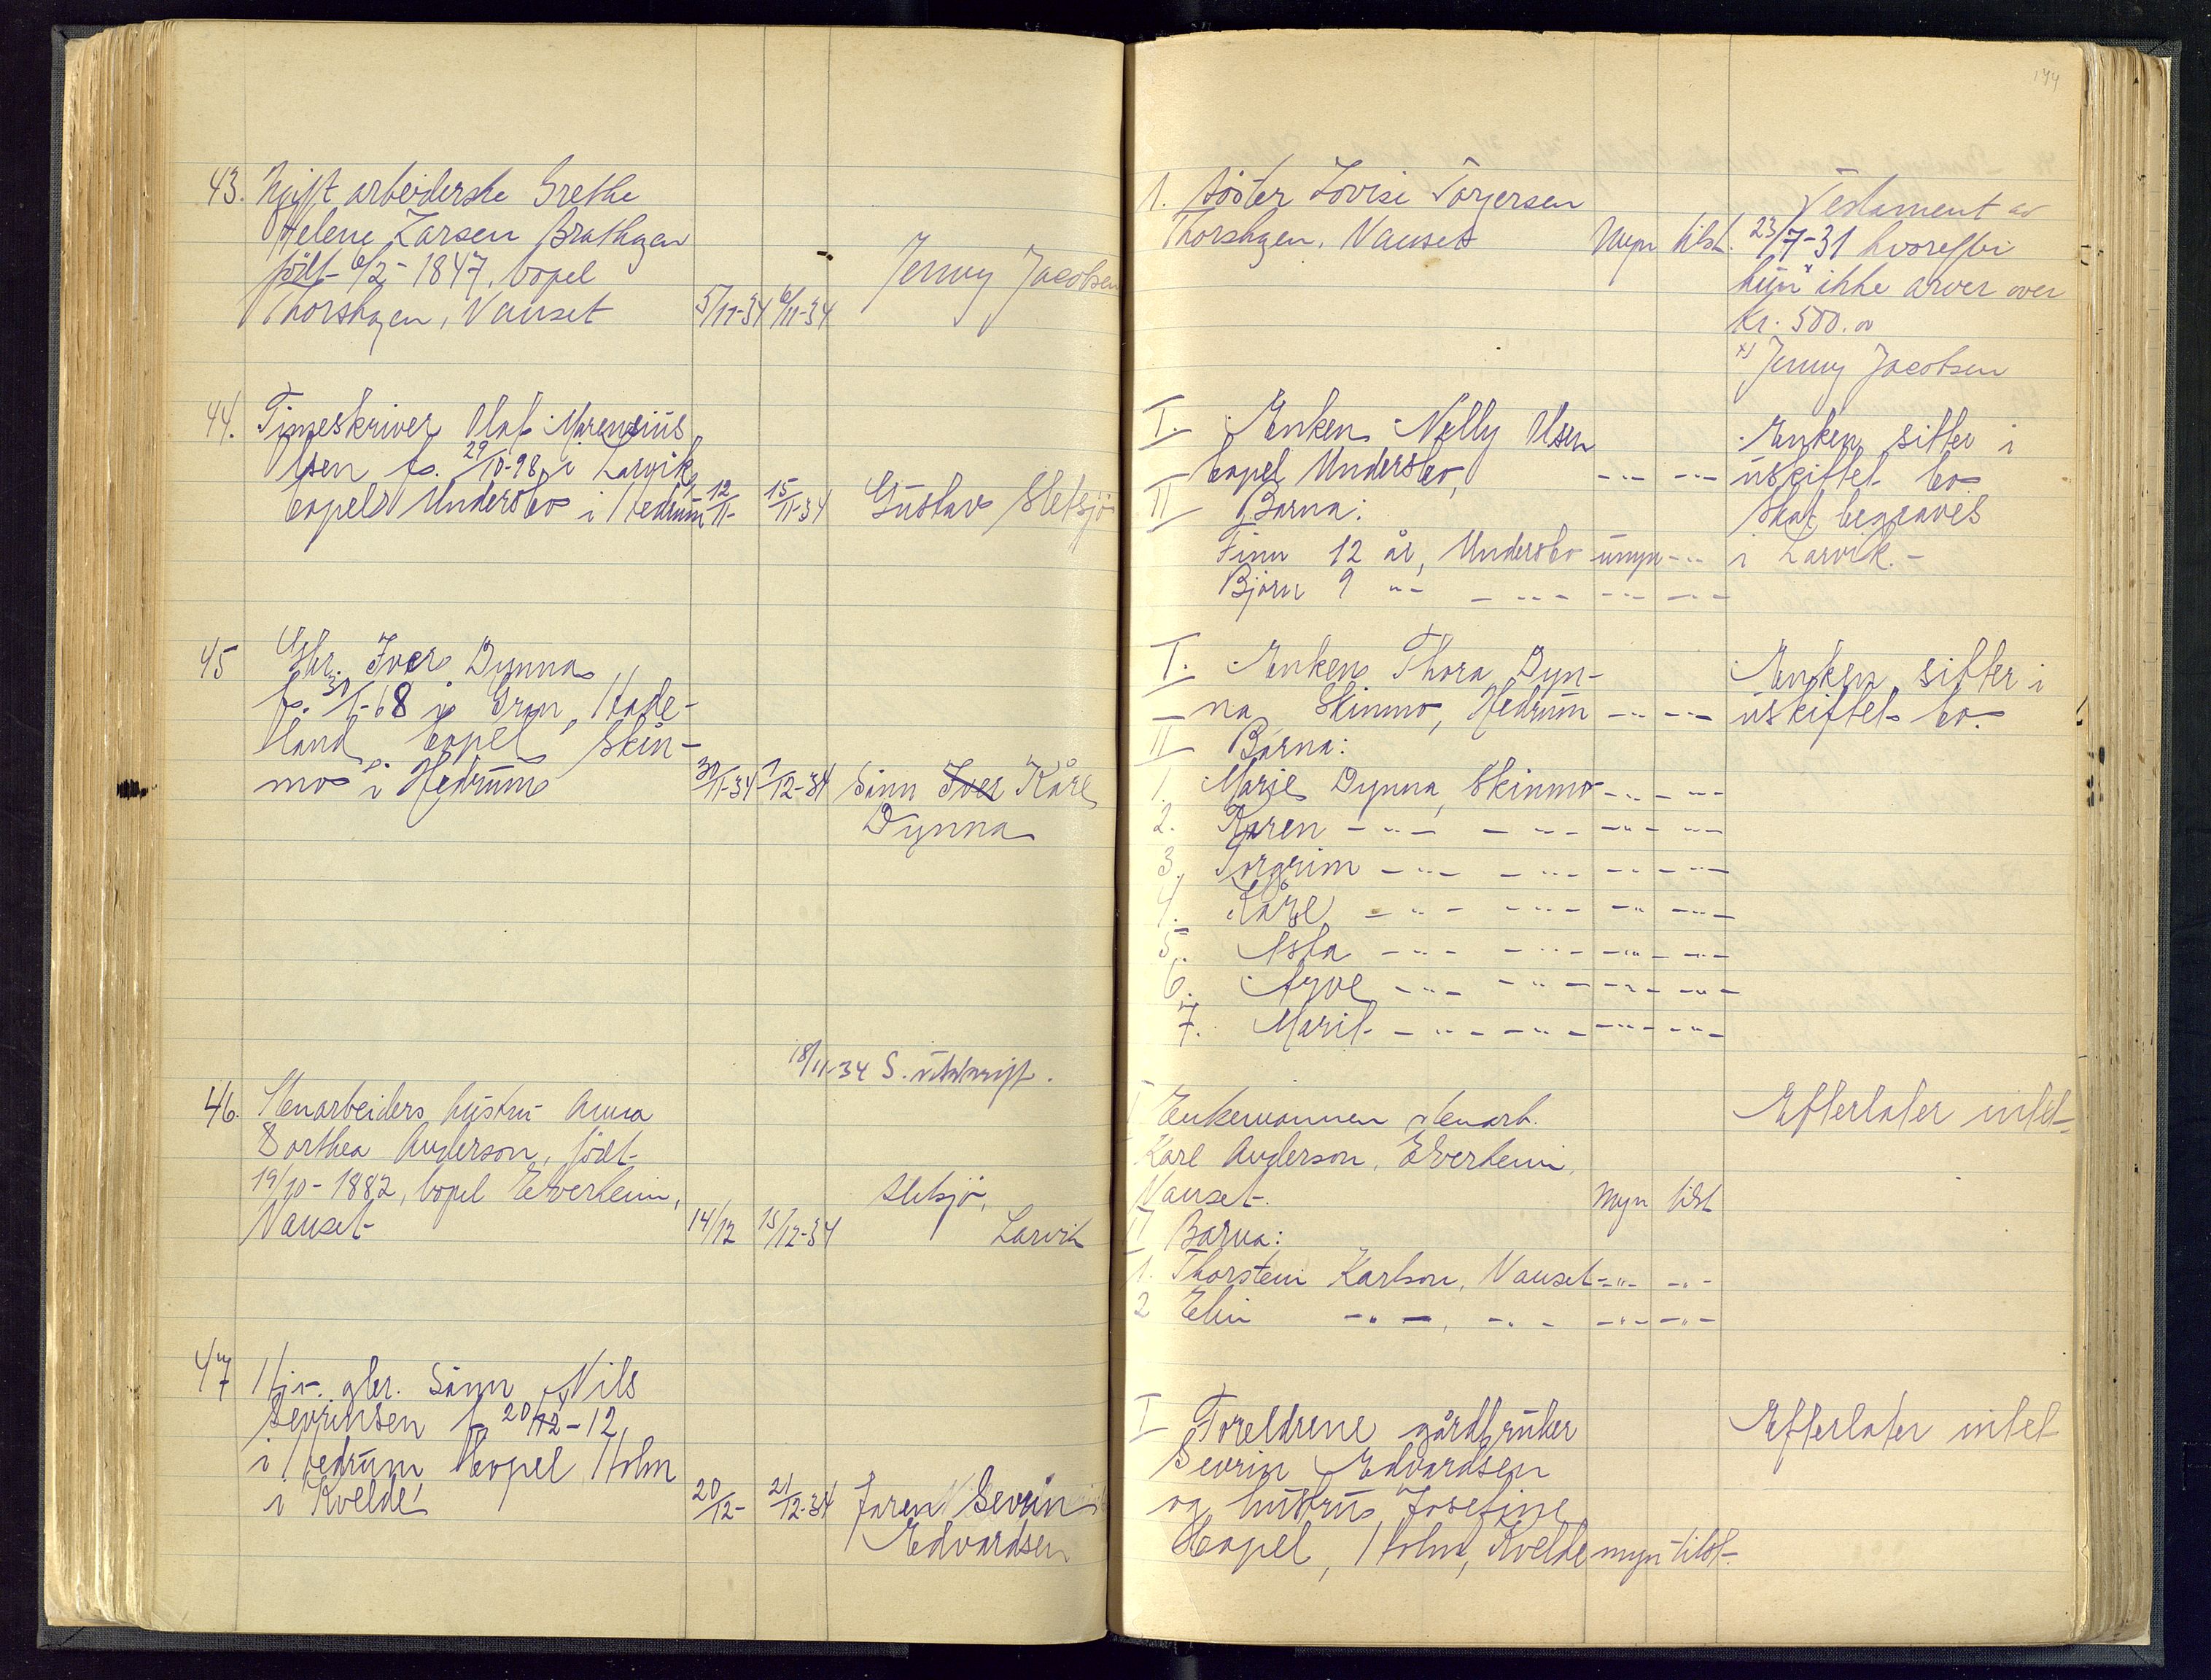 174
43. Ugift arbeiderske Grethe
Helene Larsen Brathagen
født 6/2-1847, bopel
Thorshagen, Nanset 5/11-34 6/11-34 Jenny Jacobsen
1. Søster Lovise Torgersen
Thorshagen, Nanset Myn tilst.
Testament av
23/7-31 hvorefter
hun x ikke arver over
kr. 500.00
x) Jenny Jacobsen
44. Timeskriver Olaf Marensius
Olsen f. 29/10-98 i Larvik,
bopel Undersbo i Hedrum 12/11- 15/11-34 Gustav Sletsjø
I. Enken Nelly Olsen
bopel Undersbo, -"- -"-
II Barna:
Finn 12 år, Undersbo umyn -"-
Bjørn 9 -"- -"- -"- -"-
Enken sitter i
uskiftet bo.
Skat begraves
i Larvik.-
45 Gbr. Iver Dynna
f. 30/1-68 i Gran, Hade-
land, bopel Skin-
mo i Hedrum 30/11-34 1/12-34 Sønn Iver Kåre
Dynna
I. Enken Thora Dyn-
na Skinmo, Hedrum -"- -"-
II Barna:
1. Marie Dynna, Skinmo -"- -"-
2. Karen -"- -"- -"- -"-
3. Torgrim -"- -"- -"- -"-
4. Kåre -"- -"- -"- -"-
5. Asta -"- -"- -"- -"-
6. Aqve -"- -"- -"- -"-
7. Marit -"- -"- -"- -"-
Enken sitter i
uskiftet bo.
18/11-34 S. utskrift.
46. Stenarbeiders hustru Anna
Dorthea Anderson, født
19/10-1882, bopel Elverheim,
Nanset 14/12 15/12-34 Sletsjø,
Larvik
I Enkemannen stenarb.
Karl Anderson, Elverheim,
Nanset. Myn tilst
II Barna:
1. Thorstein Karlson, Nanset -"- -"-
2 Elin -"-, -"- -"- -"-
Efterlater intet
47 Hjv. gbr. Sønn Nils
Sevrinsen f. 20/12-12
i Hedrum Bopel Holm
i Kvelde 20/12- 21/12-34 faren Sevrin
Edvardsen
I Foreldrene gårdbruker
Sevrin Edvardsen
og hustru Josefine
Bopel, Holm, Kvelde myn tilst.
Efterlater intet